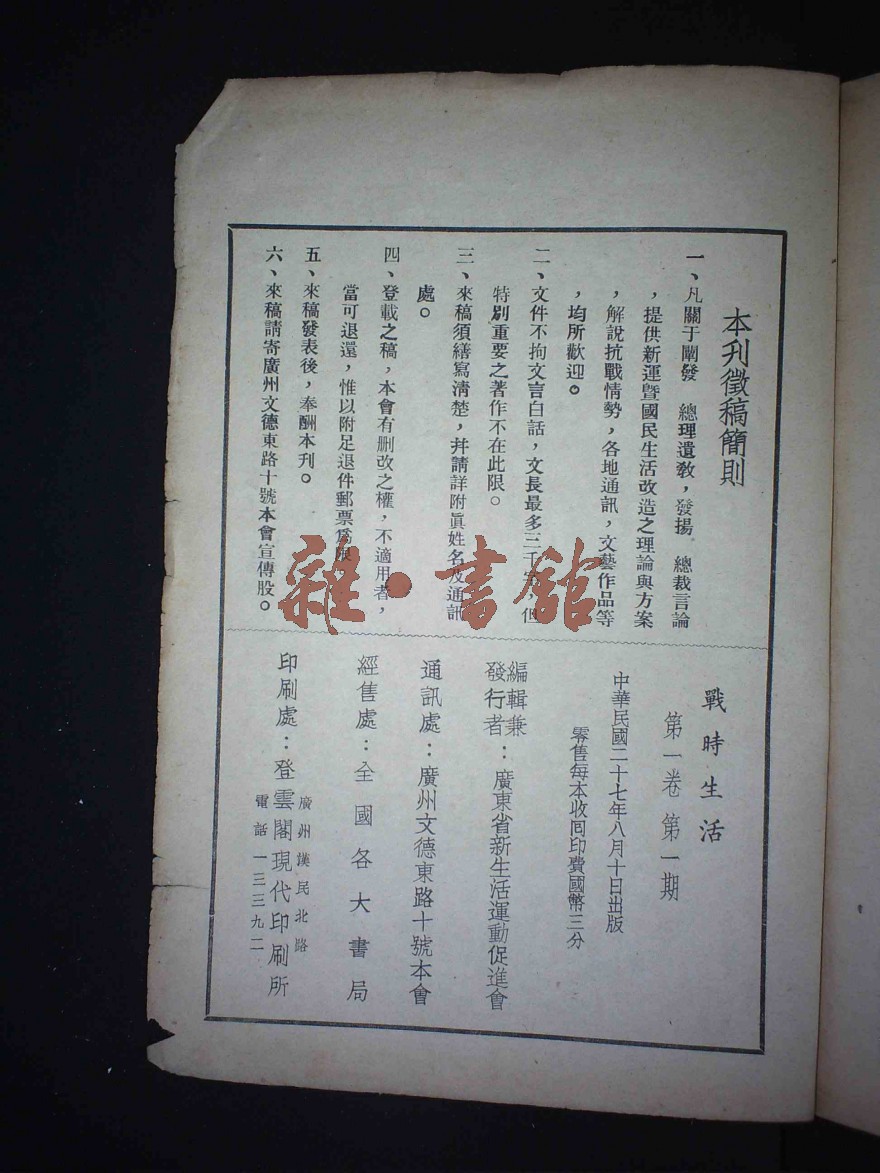 本刋徵稿簡則
一、凡關于闡發　總理遺敎，發揚　總裁言論
，提供新運暨國民生活改造之理論與方案
，解說抗戰情勢，各地通訊，文藝作品等
，均所歡迎。
二、文件不拘文言白話，文長最多三千字，但
特別重要之著作不在此限。
三、來稿須繕寫淸楚，幷請詳附眞姓名及通訊
處。
四、登載之稿，本會有刪改之權，不適用者，
當可退還，惟以附足退件郵票爲限
五、來稿發表後，奉酬本刋。
六、來稿請寄廣州文德東路十號本會宣傳股。
戰時生活
第一卷第一期
中華民國二十七年八月十日出版
零售每本收囘印費國幣三分
編輯兼
發行者：廣東省新生活運動促進會
通訊處：廣州文德東路十號本會
經售處：全國各大書局
廣州漢民北路
印刷處：登雲閣現代印刷所
電話一三三九二
雜·書館